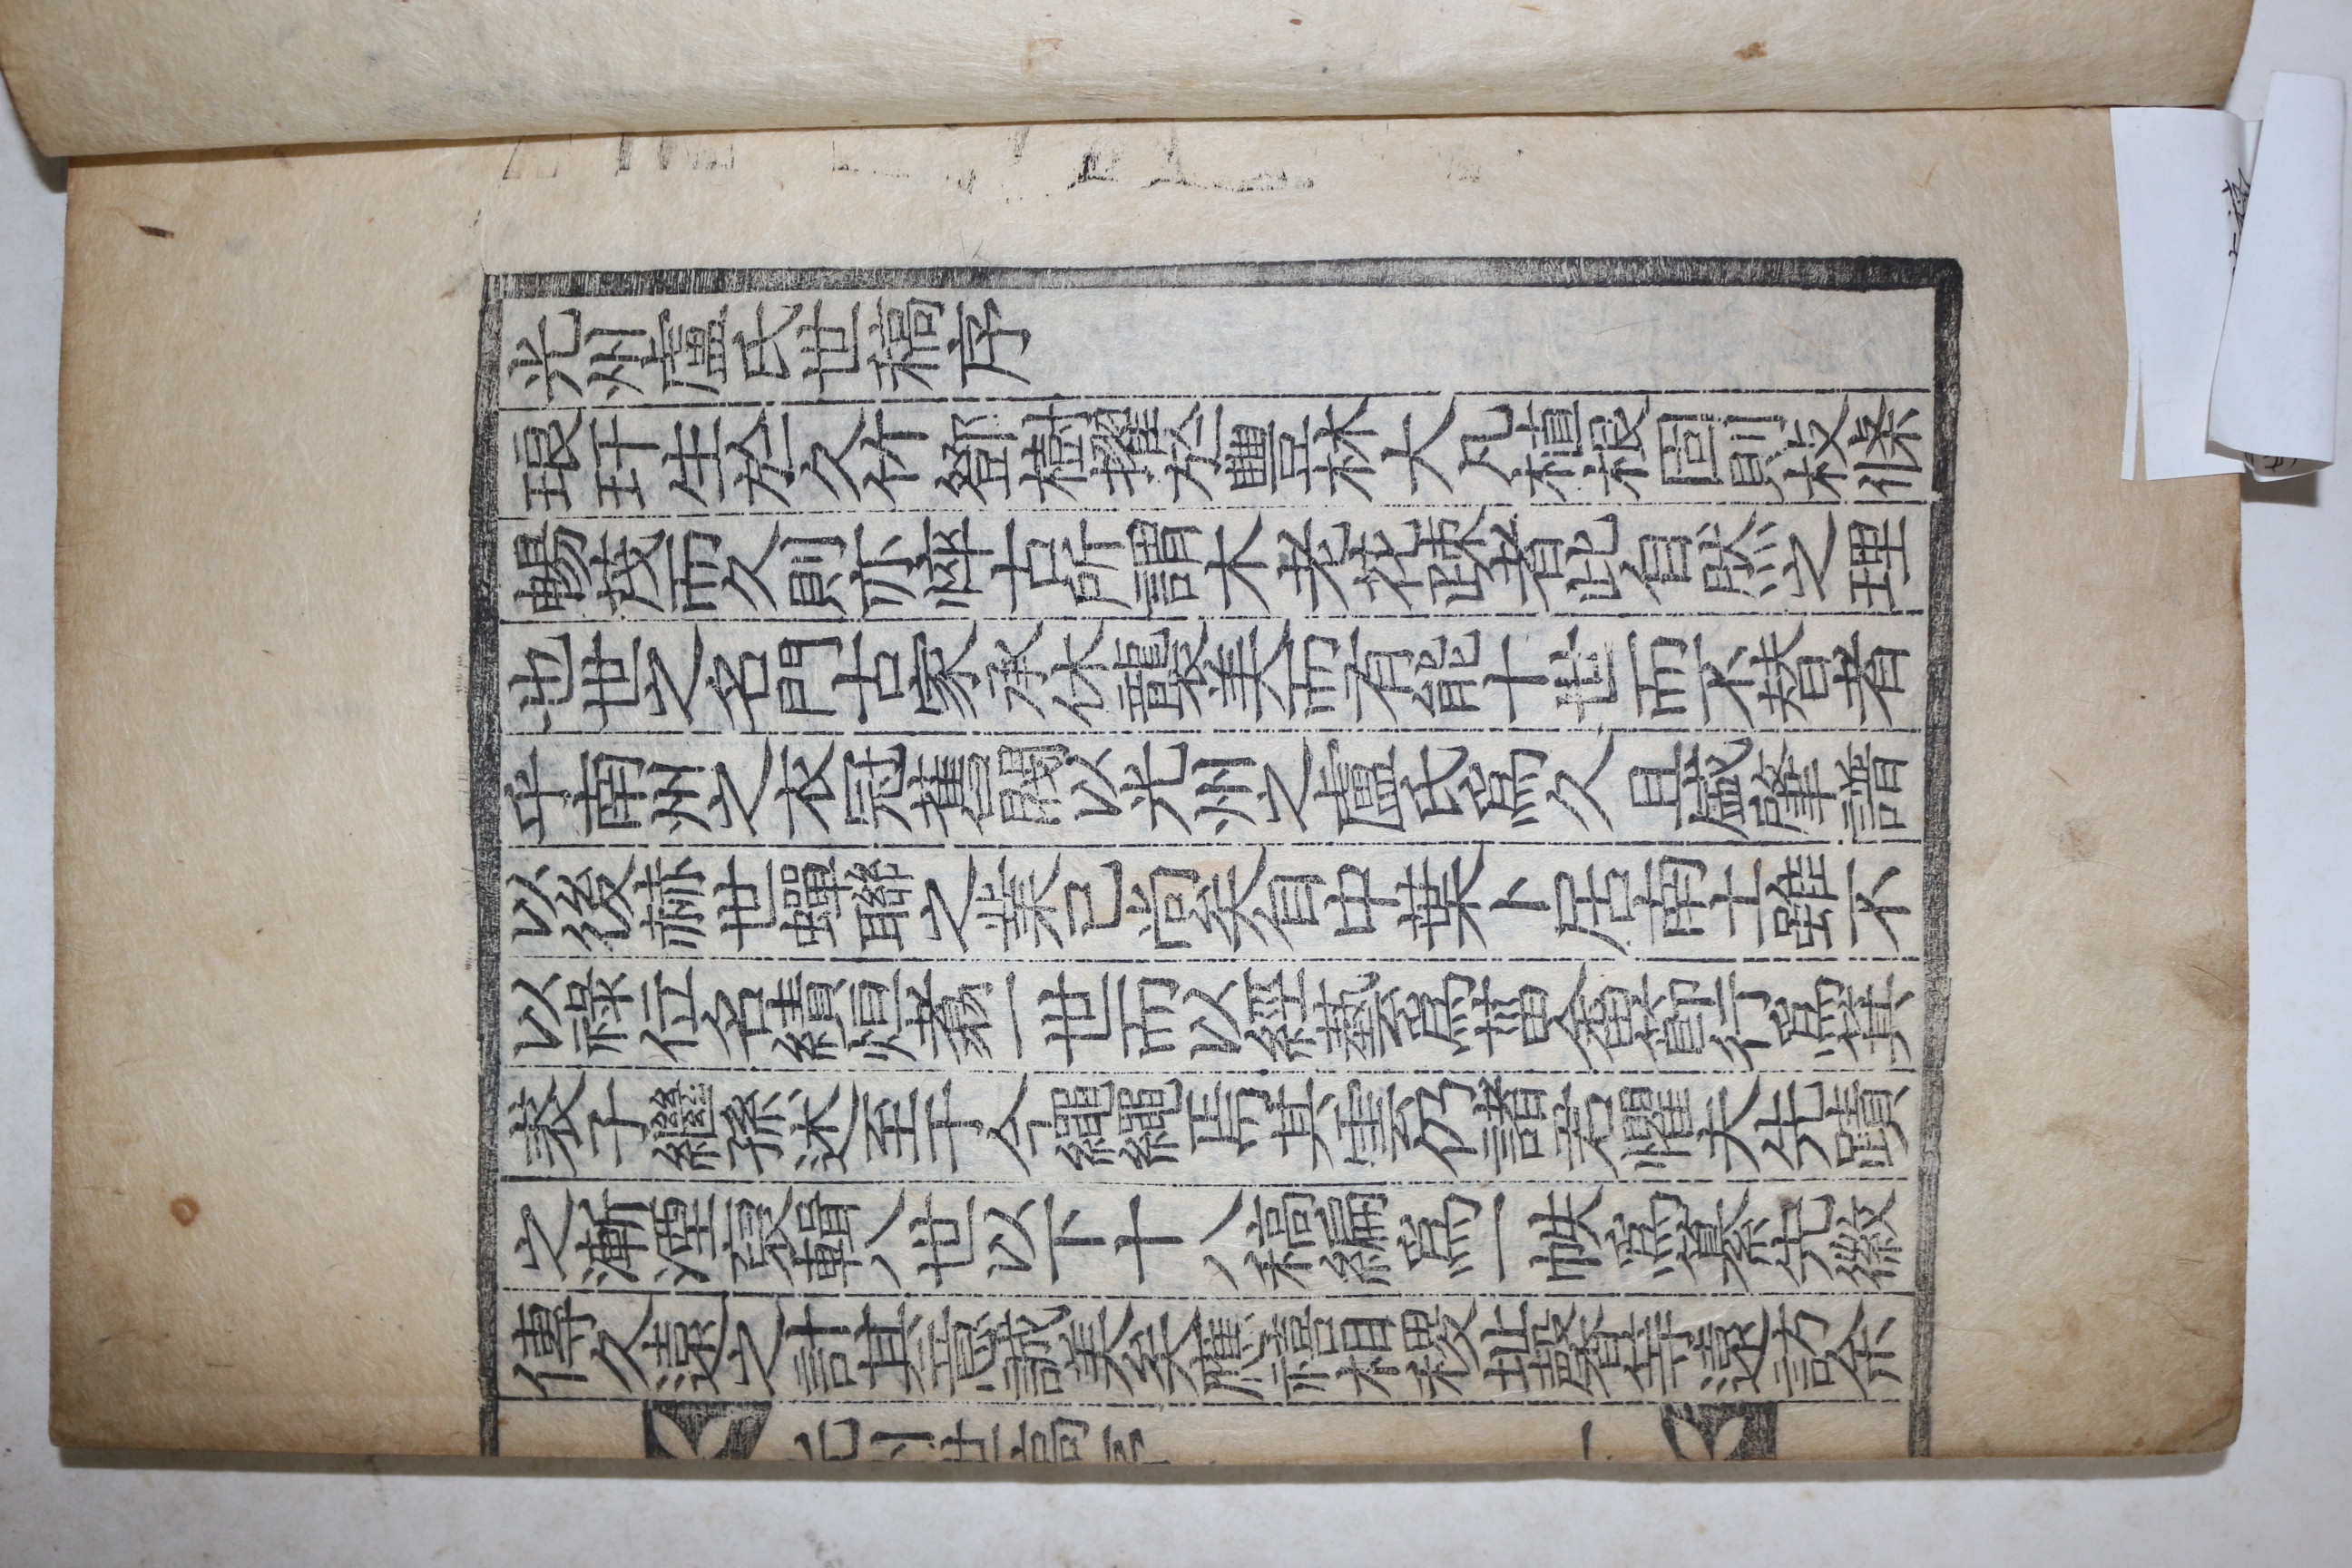 光州盧氏世稿序
琅玕生於久竹鄧樹擢於豐林大凡植根固則枝條
暢茂而久則亦悴古所謂木老花疎者此自然之理
也世之名門古家承休襲美而有能十世而不替者
乎南州之衣冠舊閥以光州之盧氏爲久且盛肇譜
以後赫世蟬聯之業已尚矣自中葉卜居南土雖不
以祿位名績烜翥一世而以經藝爲菑畬節行爲箕
裘子繼孫述至于今繩繩焉其雲仍諸君懼夫先蹟
之漸湮裒輯八世以下十八稿編爲一帙爲纂先徽
傳久遠之計其意誠美矣應禧相稷址馨等遠訪余
光州世稿序 一